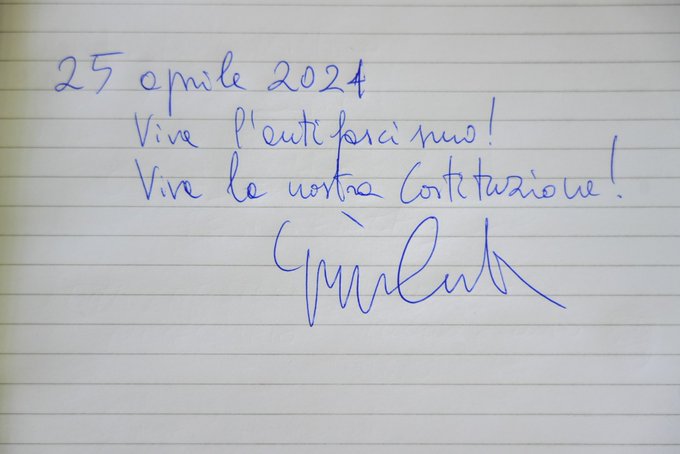 25 aprile 2024
Viva l'antifascismo!
Viva la nostra Costituzione!